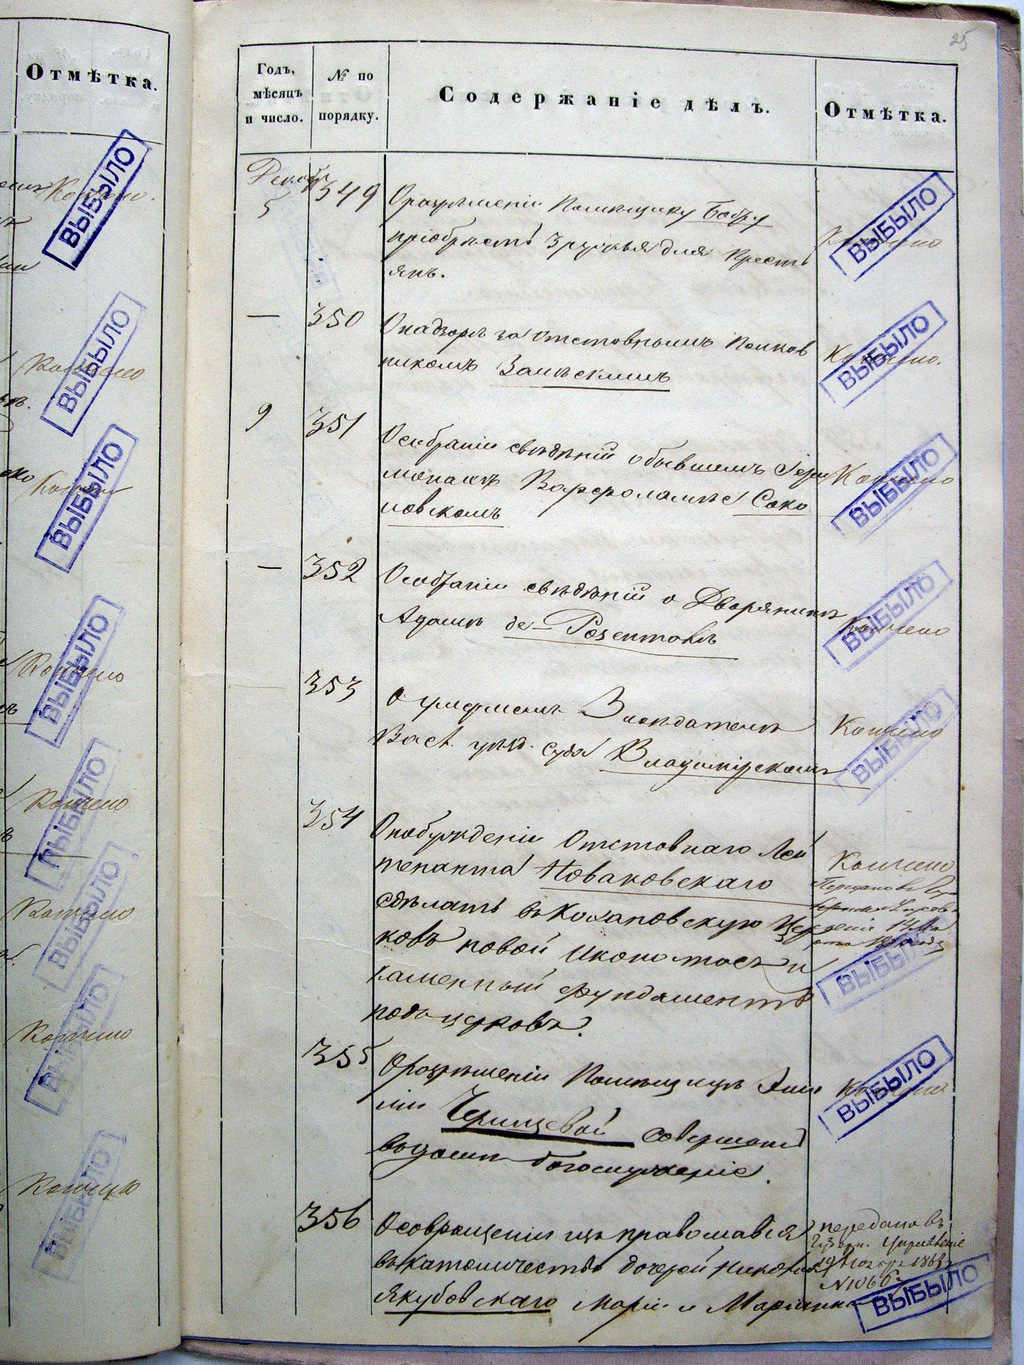 Отмѣтка.
ВЫБЫЛО
ВЫБЫЛО
Кончено
ВЫБЫЛО
ВЫБЫЛО
Кончено
ВЫБЫЛО
Кончено
ВЫБЫЛО
Кончено
ВЫБЫЛО
Кончено
ВЫБЫЛО
25
Годъ, мѣсяцъ и число.
№ по порядку.
Содержаніе дѣлъ.
Отмѣтка.
Декабр
5
349
О разрѣшеніи Помѣщику Бобру
пріобрѣсть 3 ружья для кресть
янъ.
Кончено
ВЫБЫЛО
—
350
О надзорѣ за отставнымъ Полков
никомъ Залѣскимъ
Кончено.
ВЫБЫЛО
9
351
О собраніи свѣдѣній о бывшемъ Іеро
монахѣ Варфоламѣе Соко
ловскомъ
Кончено
ВЫБЫЛО
—
352
О собраніи свѣдѣній о Дворянинѣ
Адамѣ де-Розентовѣ
Кончено
ВЫБЫЛО
353
О умершемъ Засѣдателѣ
Васл. уѣзд. суда Владимірскомъ
Кончено
ВЫБЫЛО
354
О побужденіи Отставнаго Лей
тенанта Новаковскаго
сдѣлать въ Кохановскую Цер
ковь новой иконостасъ и
каменный фундаментъ
подъ церковь.
Кончено
ВЫБЫЛО
355
О разрѣшеніи Помѣщицѣ Эми
ліи совершать
въ домѣ богослуженіе.
Кончено
ВЫБЫЛО
356
О совращеніи изъ православія
въ католичество дочерей Николая
Якубовскаго Маріи и Маріанны
передано въ
Губерн. Управленіе
19
№1066
ВЫБЫЛО